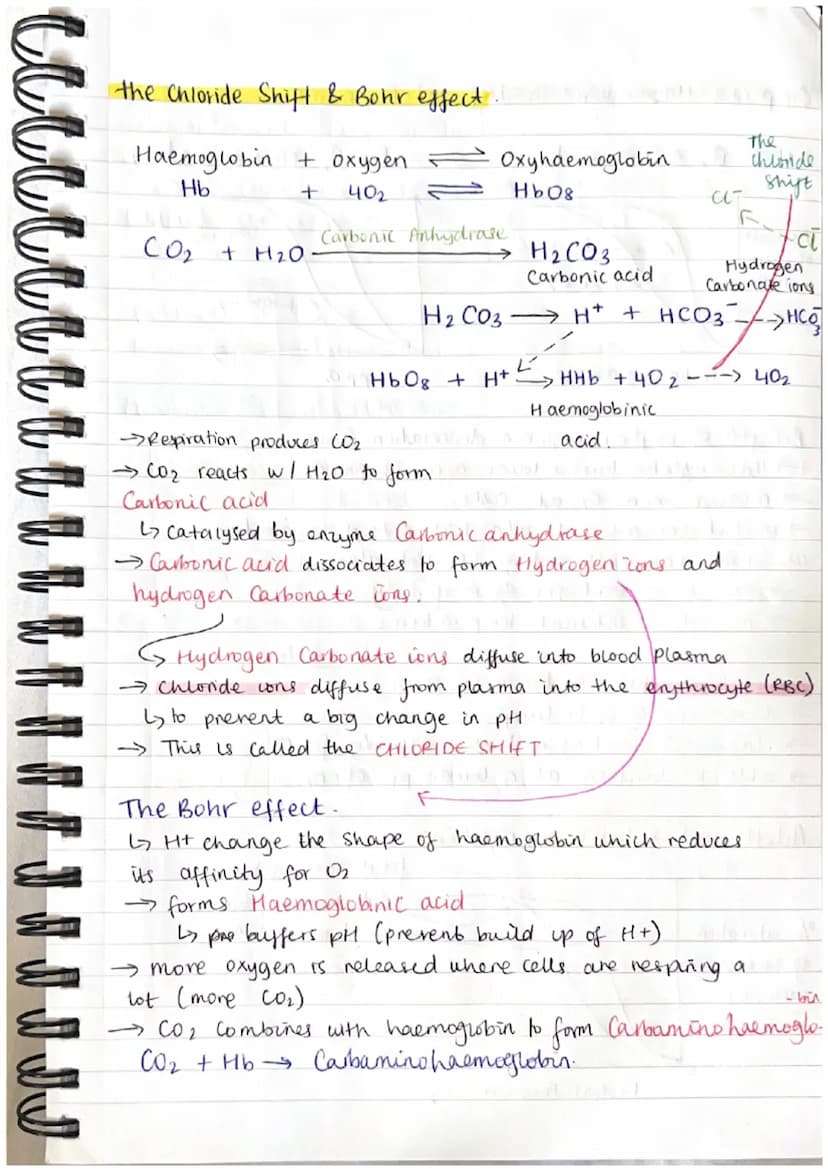 The Chloride Shift & Bohr effect.
The
chloride
shift
Haemoglobin + oxygen ⇌ Oxyhaemoglobin
Hb + 4O2 ⇌ HbO8
Cl-
Cl-
CO2 + H2O Carbonic Anhydrase → H2CO3
Carbonic acid
Hydrogen
Carbonate ions
H2CO3 → H+ + HCO3- --→ HCO3-
HbO8 + H+ → HHb + 4O2 ---> 4O2
Haemoglobinic
acid.
→ Respiration produces CO2
→ CO2 reacts w/ H2O to form
Carbonic acid
↳ Catalysed by enzyme Carbonic anhydrase
→ Carbonic acid dissociates to form Hydrogen ions and
hydrogen Carbonate ions.
↳ Hydrogen Carbonate ions diffuse into blood plasma
→ Chloride ions diffuse from plasma into the erythrocyte (RBC)
↳ to prevent a big change in pH
→ This is called the CHLORIDE SHIFT
The Bohr effect.
↳ H+ change the shape of haemoglobin which reduces
its affinity for O2
→ forms Haemoglobinic acid
↳ buffers pH (prevent build up of H+)
→ more oxygen is released where cells are respiring a
lot (more CO2)
→ CO2 combines with haemoglobin to form Carbaminohaemoglo-
-bin
CO2 + Hb → Carbaminohaemoglobin.